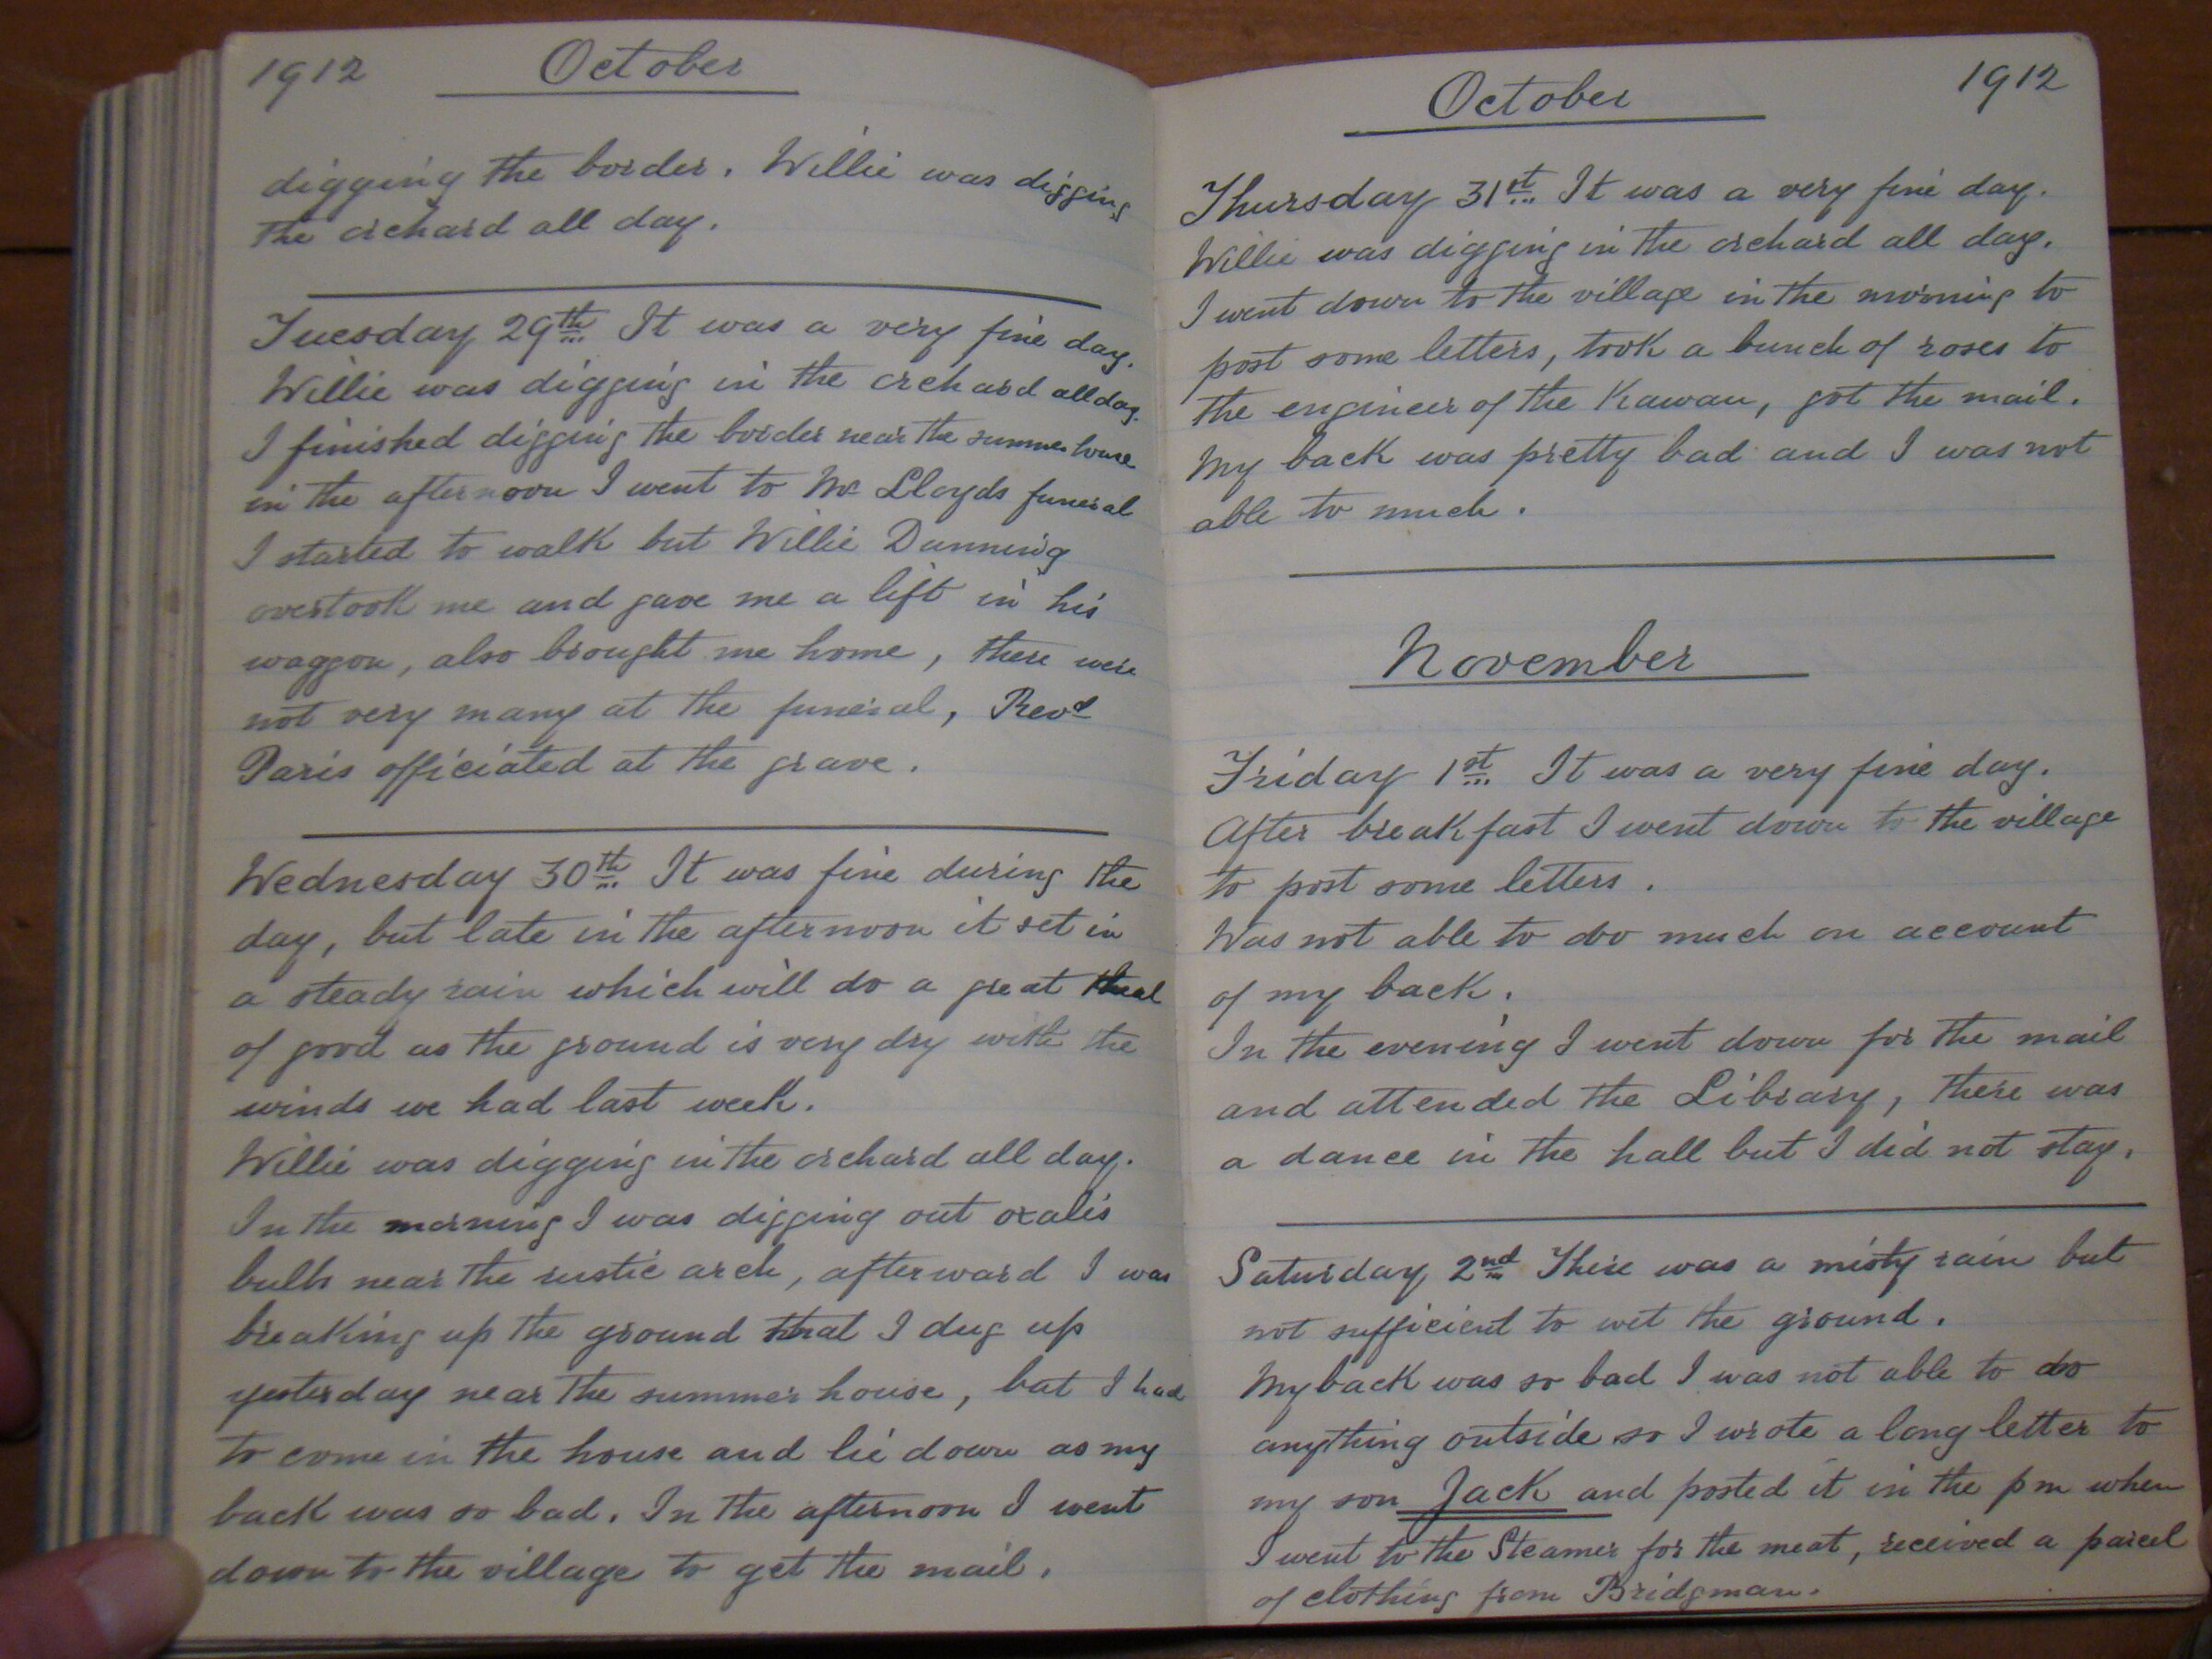 1912 October
digging the border. Willie was digging
the orchard all day.
Tuesday 29th It was a very fine day.
Willie was digging in the orchard all day.
I finished digging the border near the summer house
in the afternoon I went to Mr Lloyds funeral
I started to walk but Willie Dunning
overtook me and gave me a lift in his
waggon, also brought me home, there were
not very many at the funeral, Revd
Paris officiated at the grave.
Wednesday 30th It was fine during the
day, but late in the afternoon it set in
a steady rain which will do a great deal
of good as the ground is very dry with the
winds we had last week.
Willie was digging in the orchard all day.
In the morning I was digging out oxalis
bulbs near the rustic arch, afterward I was
breaking up the ground that I dug up
yesterday near the summer house, but I had
to come in the house and lie down as my
back was so bad. In the afternoon I went
down to the village to get the mail.
October 1912
Thursday 31st It was a very fine day.
Willie was digging in the orchard all day.
I went down to the village in the morning to
post some letters, took a bunch of roses to
the engineer of the Kawau, got the mail.
My back was pretty bad and I was not
able to much.
November
Friday 1st It was a very fine day.
After breakfast I went down to the village
to post some letters.
Was not able to do much on account
of my back.
In the evening I went down for the mail
and attended the Library, there was
a dance in the hall but I did not stay.
Saturday 2nd There was a misty rain but
not sufficient to wet the ground.
My back was so bad I was not able to do
anything outside so I wrote a long letter to
my son Jack and posted it in the pm when
I went to the Steamer for the meat, received a parcel
of clothing from Bridgman.